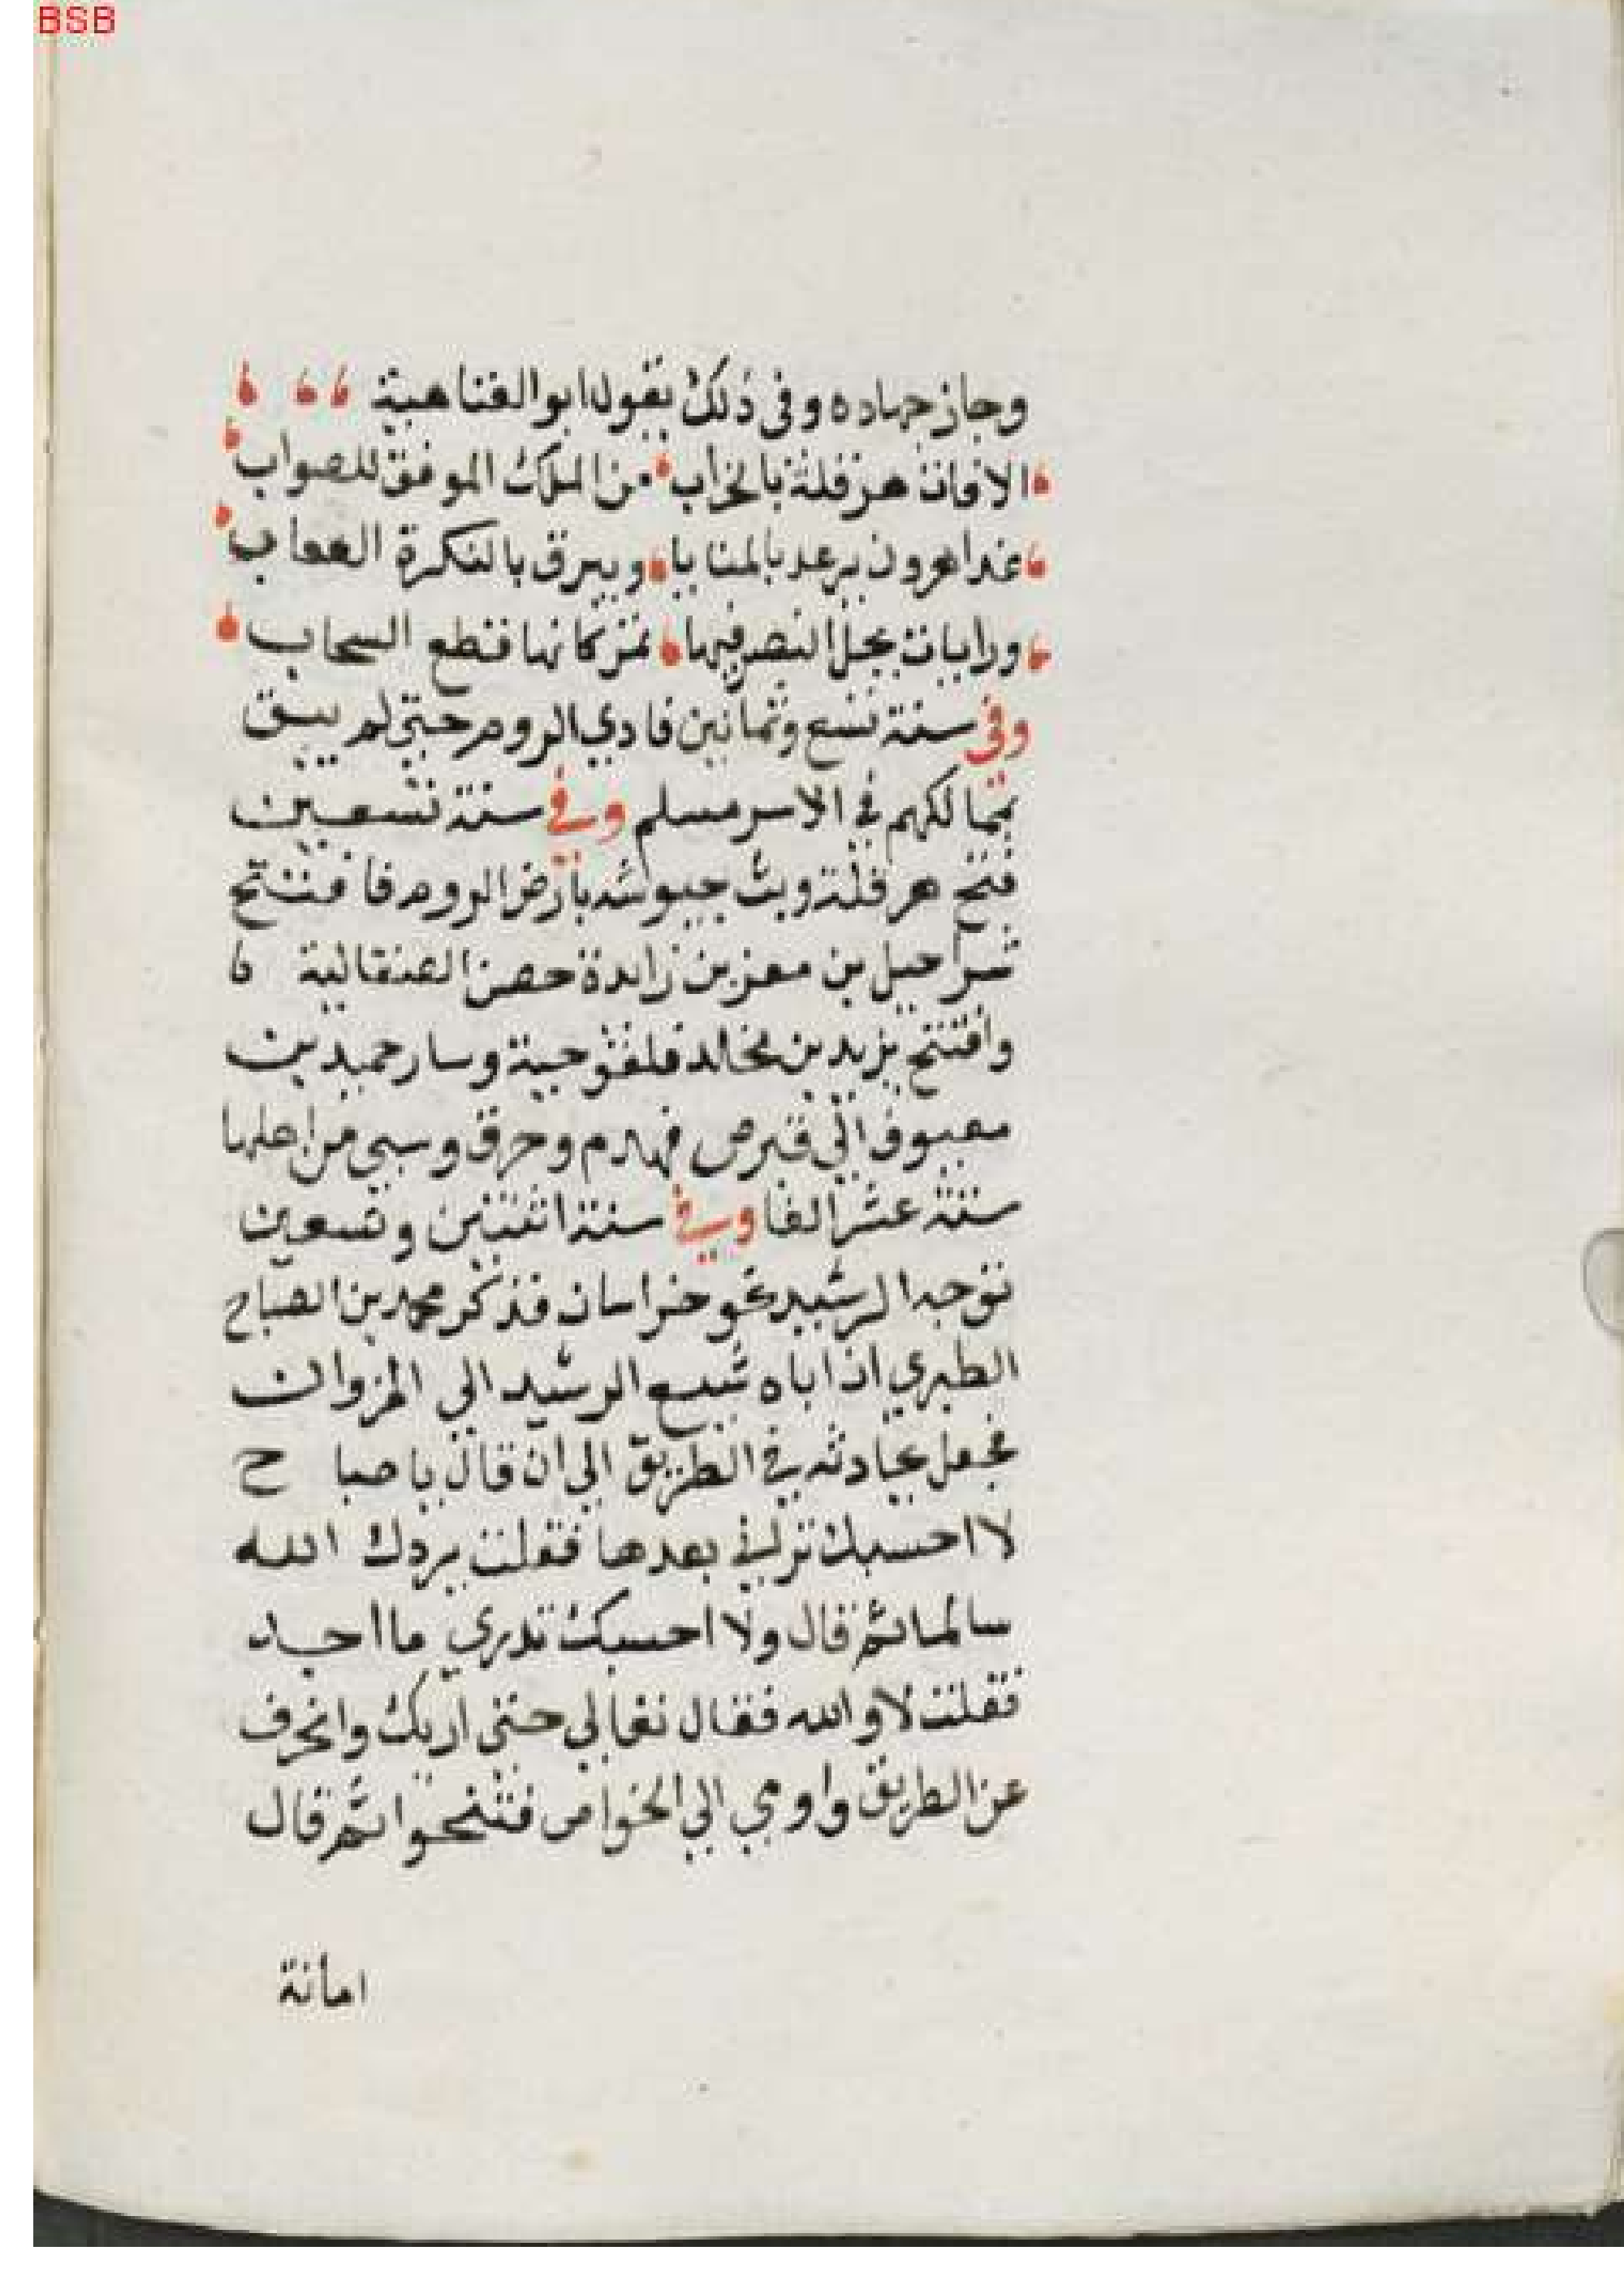 BSB
وجاز جهاده وفى ذلك يقول ابوالعتاهية
الافانت هرقلة بالخراب من الملك الموفق للصواب
غدا هرون يرعد بالمنايا ويبرق بالفكرة العضاب
ورايات يحل النصر فيها تمر كانها قطع السحاب
وفى سنة تسع وثمانين فادي الروم حتى لم يبق
بممالكهم في الاسر مسلم وفي سنة تسعين
فتح هرقلة وبث جيوشه بارض الروم فافتتح
شراحيل بن معن بن زايدة حصن الصقالبة
وافتتح يزيد بن مخالد فلقوحية وسار حميد بن
معيوف الي قبرص فهدم وحرق وسبي من اهلها
ستة عشر الفا وفي سنة اثنتين وتسعين
توجه الرشيد نحو خراسان فذكر محمد بن الصباح
الطبري ان اباه شيع الرشيد الي النهروان
فجعل يحادثه في الطريق الي ان قال يا صباح
لا احسبك تراني بعدها فقلت يردك الله
سالما ثم قال ولا احسبك تدري ما اجد
فقلت لا والله فقال تعالي حتى اريك وانحرف
عن الطريق واومي الي الخواص فتنحوا ثم قال
امانة